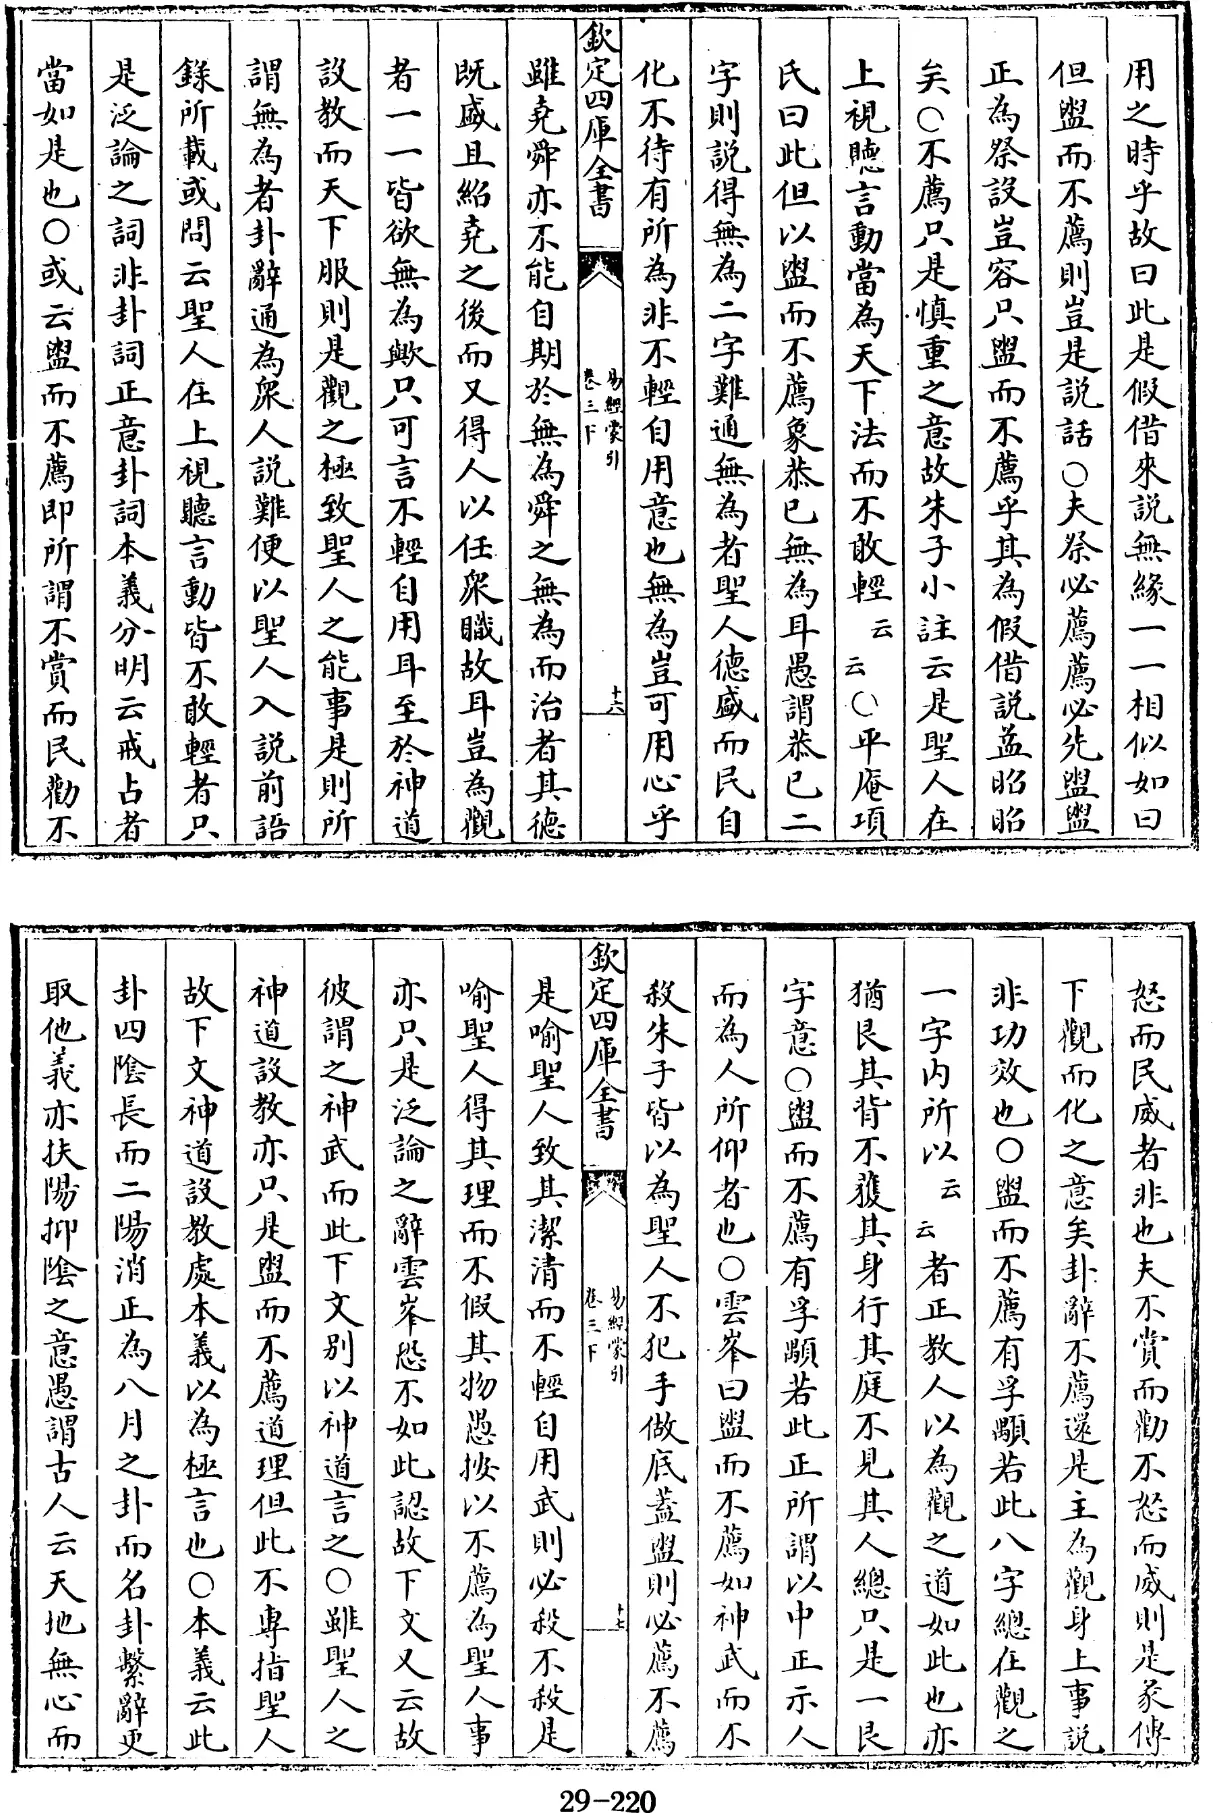 用之時乎故曰此是假借來説無緣一一相似如曰
但盥而不薦則豈是説話○夫祭必薦薦必先盥盥
正為祭設豈容只盥而不薦乎其為假借説益昭昭
矣○不薦只是慎重之意故朱子小註云是聖人在
上視聽言動當為天下法而不敢輕云云○平庵項
氏曰此但以盥而不薦象恭已無為耳愚謂恭已二
字則説得無為二字難通無為者聖人德盛而民自
化不待有所為非不輕自用意也無為豈可用心乎
欽定四庫全書
易經蒙引
卷三下
十六
雖堯舜亦不能自期於無為舜之無為而治者其德
既盛且紹堯之後而又得人以任衆職故耳豈為觀
者一一皆欲無為歟只可言不輕自用耳至於神道
設教而天下服則是觀之極致聖人之能事是則所
謂無為者卦辭通為衆人説難便以聖人入説前語
錄所載或問云聖人在上視聽言動皆不敢輕者只
是泛論之詞非卦詞正意卦詞本義分明云戒占者
當如是也○或云盥而不薦即所謂不賞而民勸不
怒而民威者非也夫不賞而勸不怒而威則是彖傳
下觀而化之意矣卦辭不薦還是主為觀身上事説
非功效也○盥而不薦有孚顒若此八字總在觀之
一字内所以云云者正教人以為觀之道如此也亦
猶艮其背不獲其身行其庭不見其人總只是一艮
字意○盥而不薦有孚顒若此正所謂以中正示人
而為人所仰者也○雲峯曰盥而不薦如神武而不
殺朱子皆以為聖人不犯手做底蓋盥則必薦不薦
欽定四庫全書
易經蒙引
卷三下
十七
是喻聖人致其潔清而不輕自用武則必殺不殺是
喻聖人得其理而不假其物愚按以不薦為聖人事
亦只是泛論之辭雲峯恐不如此認故下文又云故
彼謂之神武而此下文别以神道言之○雖聖人之
神道設教亦只是盥而不薦道理但此不專指聖人
故下文神道設教處本義以為極言也○本義云此
卦四陰長而二陽消正為八月之卦而名卦繫辭更
取他義亦扶陽抑陰之意愚謂古人云天地無心而
29-220